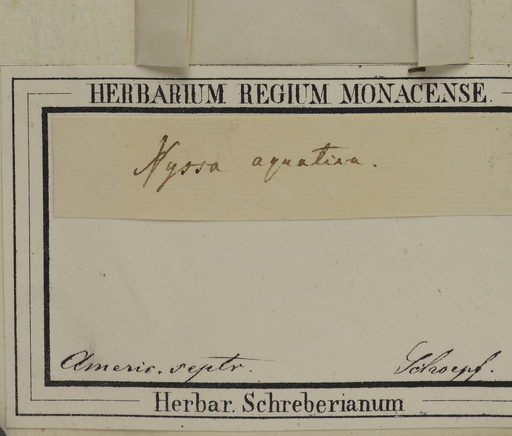 HERBARIUM REGIUM MONACENSE.
Nyssa aquatica.
Americ. septr. Schoepf.
Herbar. Schreberianum